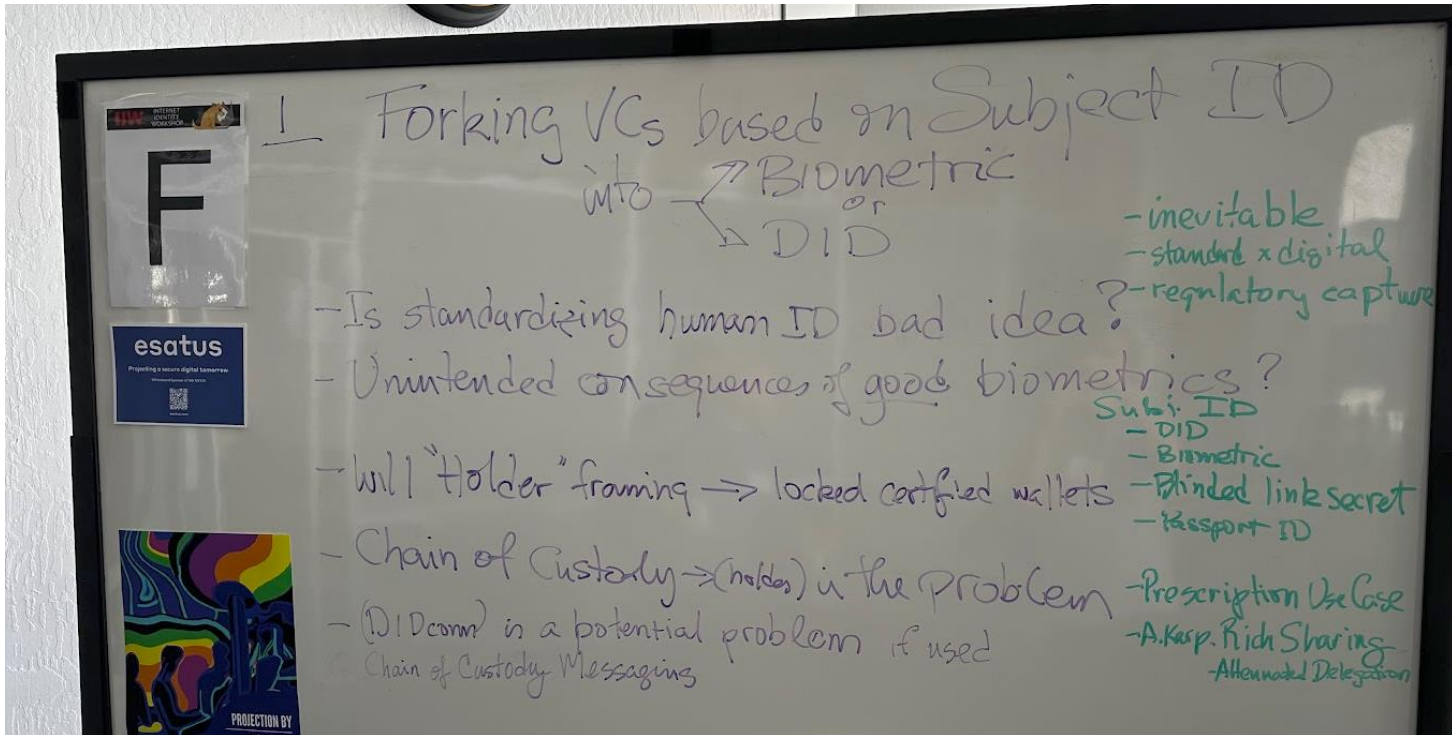 IIW INTERNET IDENTITY WORKSHOP
F
esatus
Projecting a secure digital tomorrow
PROJECTION BY
1 Forking VCs based on Subject ID
into Biometric
or
DID
- Is standardizing human ID bad idea?
- Unintended consequences of good biometrics?
- Will "Holder" framing → locked certified wallets
- Chain of Custody → (holder) is the problem
- (DIDcomm) is a potential problem if used
Chain of Custody Messaging
- inevitable
- standard x digital
- regulatory capture
Subj. ID
- DID
- Biometric
- Blinded link secret
- Passport ID
- Prescription Use Case
- A. Karp. Rich Sharing
- Attenuated Delegation